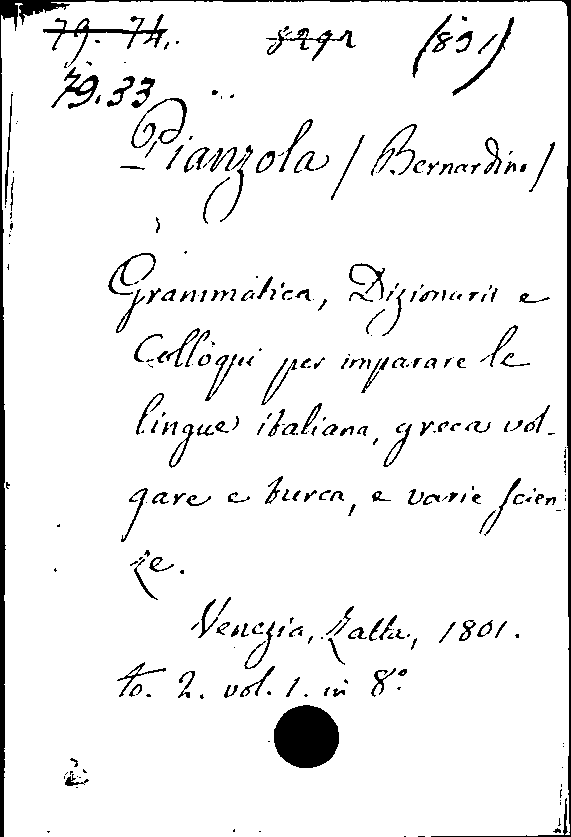 79. 74. 8292 (891)
79.33
Pianzola / Bernardino /
Grammatica, Dizionarii e
Collòqui per imparare le
lingue italiana, greca vol-
gare e turca, e varie scien-
ze.
Venezia, Zatta, 1801.
to. 2. vol. 1. in 8.º